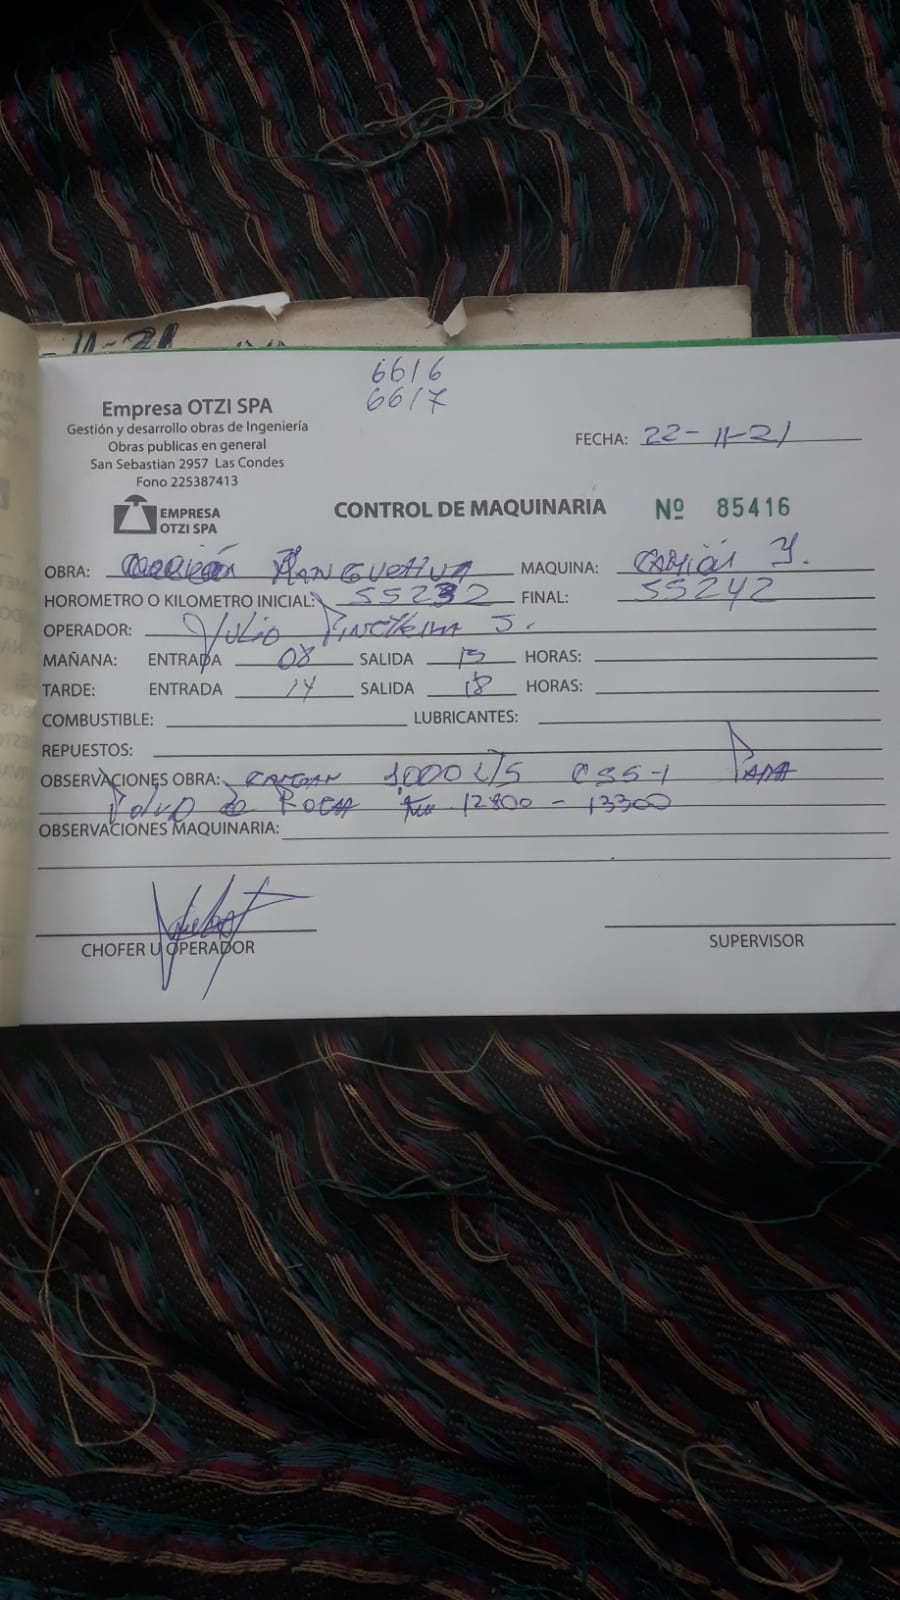 6616
6617
Empresa OTZI SPA
Gestión y desarrollo obras de Ingeniería
Obras publicas en general
San Sebastian 2957 Las Condes
Fono 225387413
FECHA: 22-11-21
EMPRESA
OTZI SPA
CONTROL DE MAQUINARIA Nº 85416
OBRA: MAQUINA: CAMIÓN
HOROMETRO O KILOMETRO INICIAL: 55232 FINAL: 55242
OPERADOR: JULIO S.
MAÑANA: ENTRADA 08 SALIDA 13 HORAS:
TARDE: ENTRADA 14 SALIDA 18 HORAS:
COMBUSTIBLE: LUBRICANTES:
REPUESTOS:
OBSERVACIONES OBRA: 1000 LTS CSS-1 PARA
POLVO de ROCA 12800 - 13300
OBSERVACIONES MAQUINARIA:
CHOFER U OPERADOR
SUPERVISOR